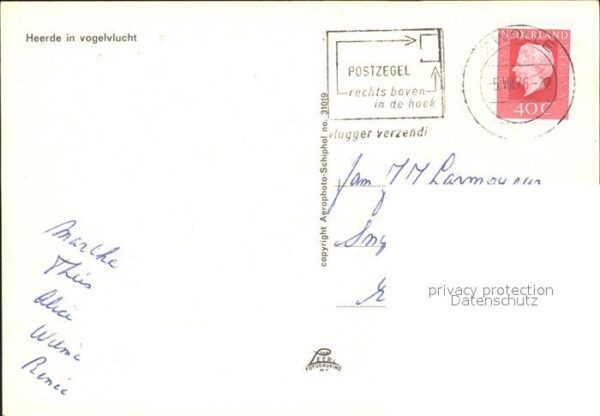 Heerde in vogelvlucht
POSTZEGEL
rechts boven
in de hoek
vlugger verzendi
NEDERLAND
40 C
copyright Aerophoto-Schiphol no. 31019
Fam J J
privacy protection
Datenschutz
Marthe
Thijs
Alice
Willie
Renée
LEER
FOTODRUKIND
N.V.